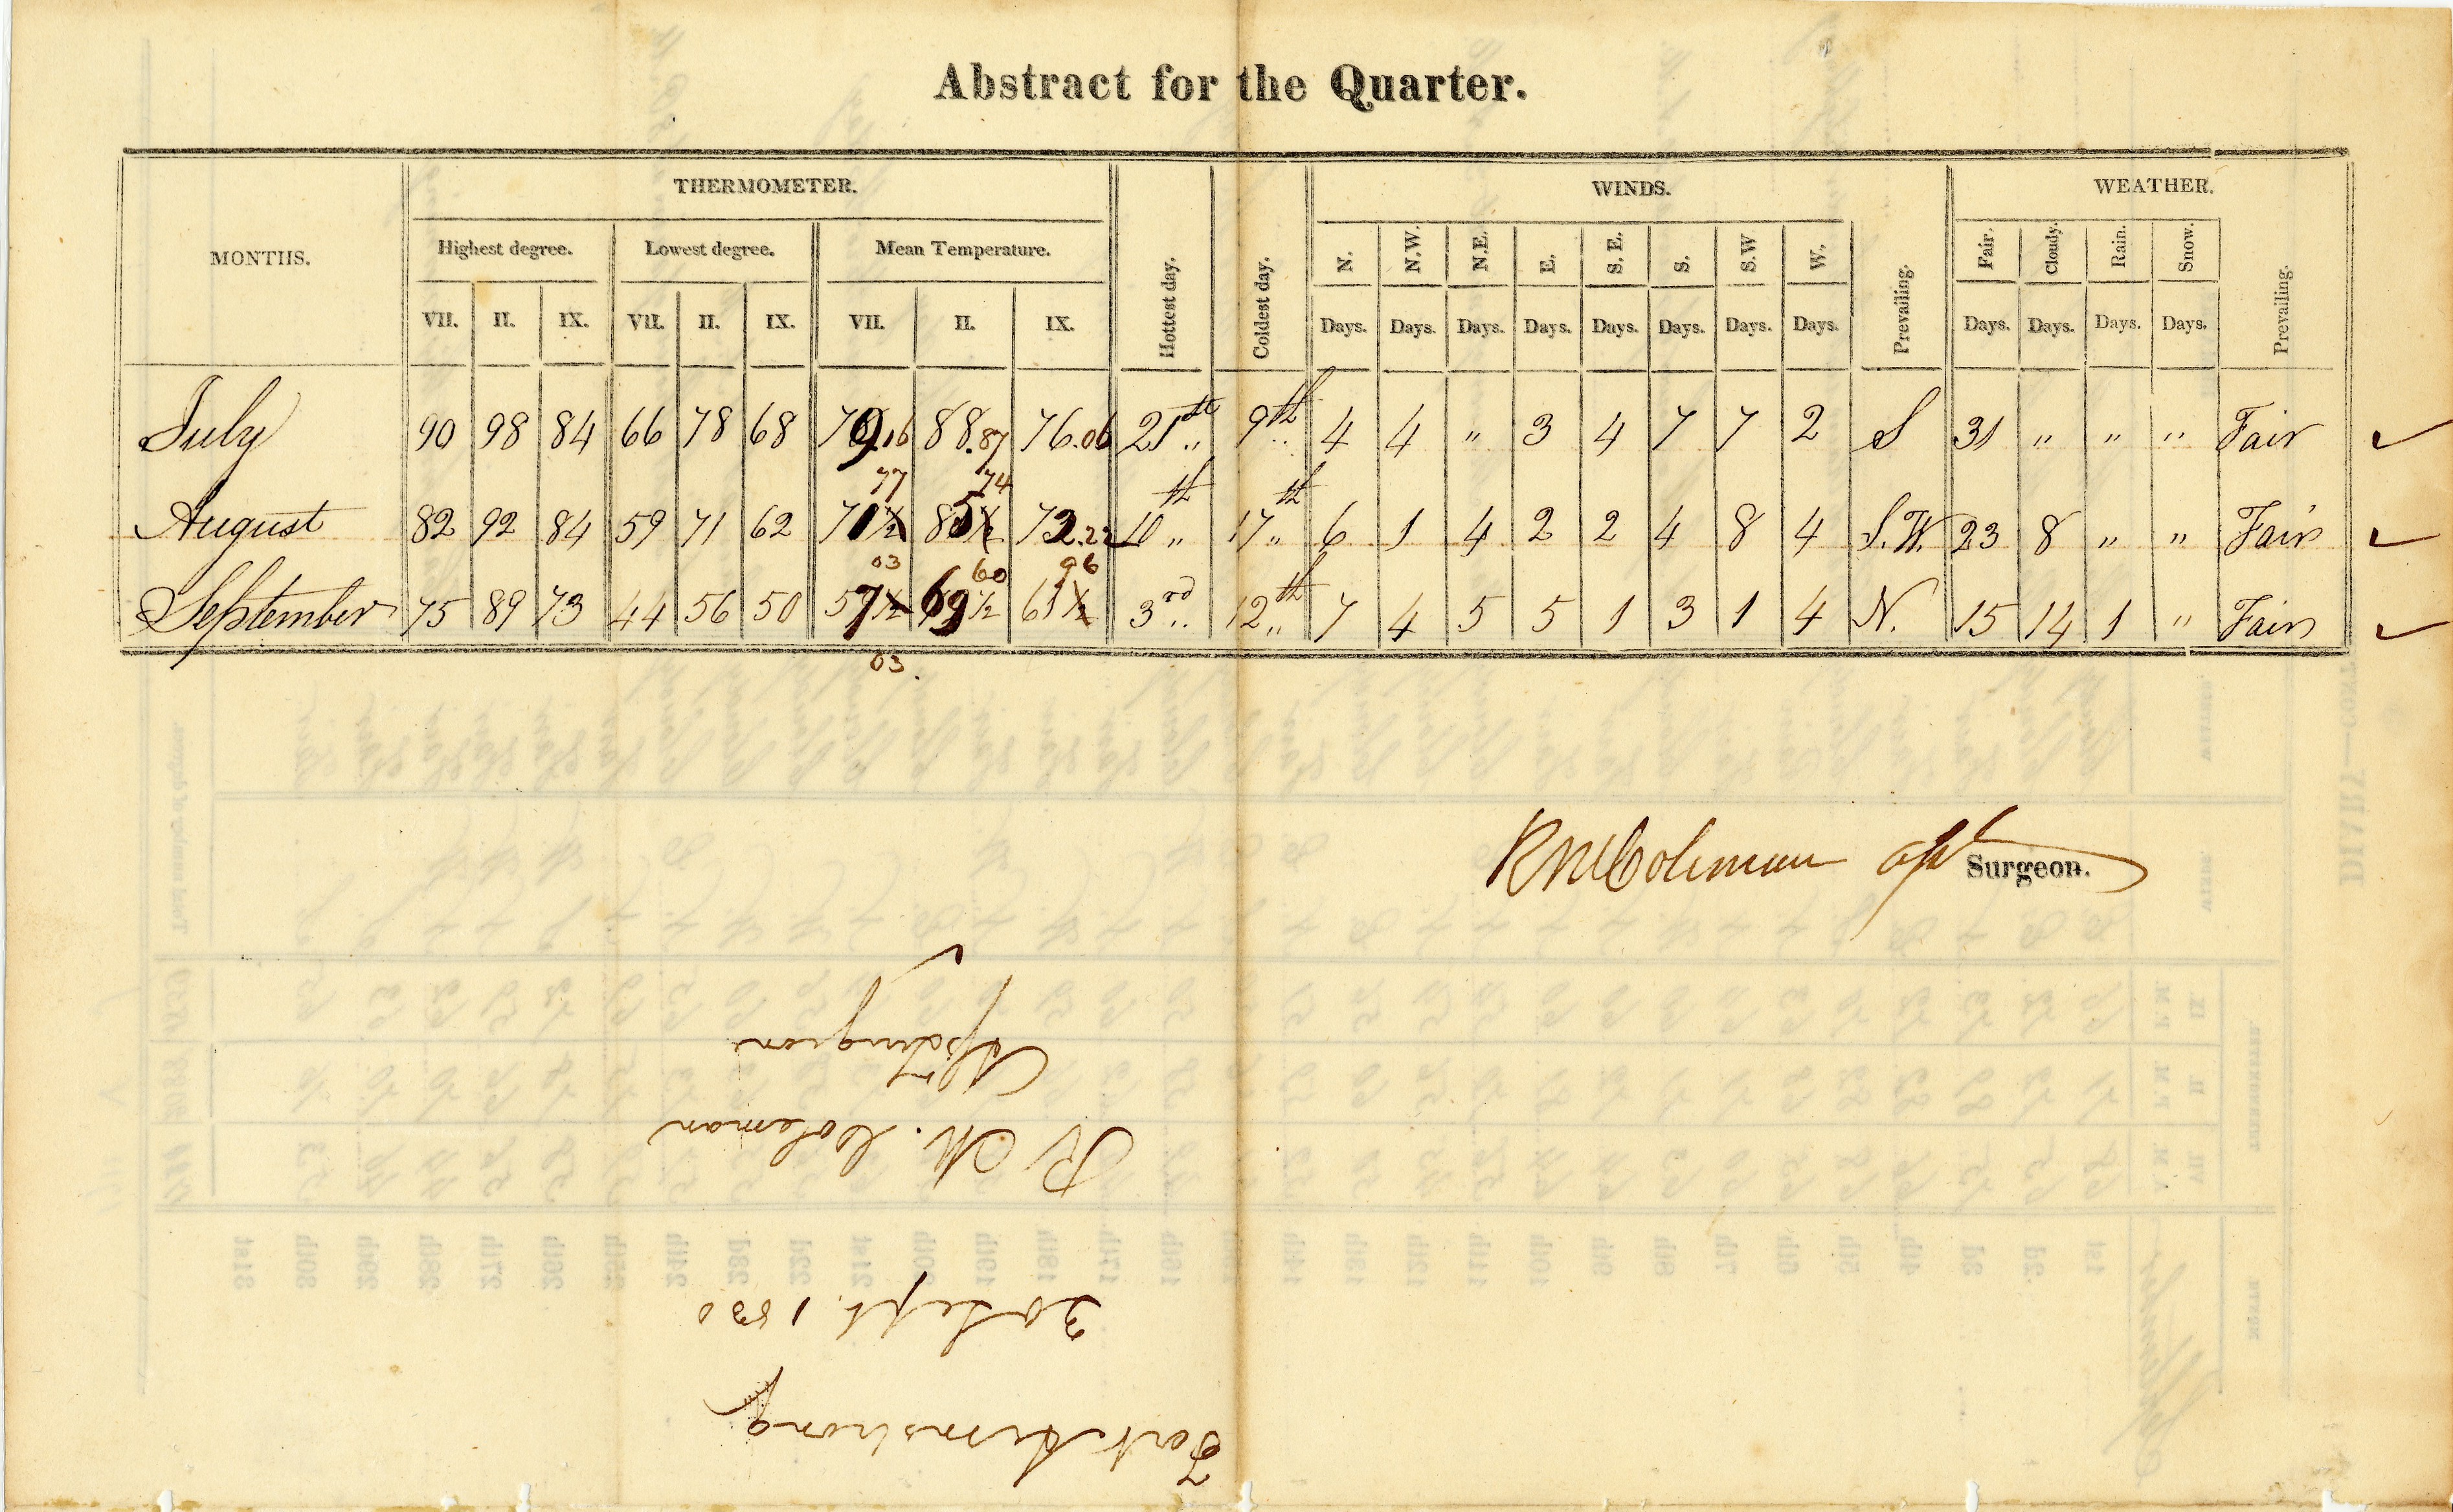 Abstract for the Quarter.
MONTHS. THERMOMETER. Hottest day. Coldest day. WINDS. WEATHER.
Highest degree. Lowest degree. Mean Temperature. N. N.W. N.E. E. S.E. S. S.W W. Prevailing. Fair. Cloudy. Rain. Snow. Prevailing.
VII. II. IX. VII. II. IX. VII. II. IX. Days. Days. Days. Days. Days. Days. Days. Days. Days. Days. Days. Days.
July 90 98 84 66 78 68 79.16 88.87 76.06 21st 9th 4 4 " 3 4 7 7 2 S 31 " " " Fair
77 74
August 82 92 84 59 71 62 71 85 72.22 10th 17th 6 1 4 2 2 4 8 4 S.W. 23 8 " " Fair
03 60 96
September 75 89 73 44 56 50 57 ½ 69 ½ 61 ½ 3rd 12th 7 4 5 5 1 3 1 4 N. 15 14 1 " Fair
03.
RM Coleman Ast Surgeon.
Fort Armstrong
30 Sept. 1830
R M. Coleman
At Surgeon